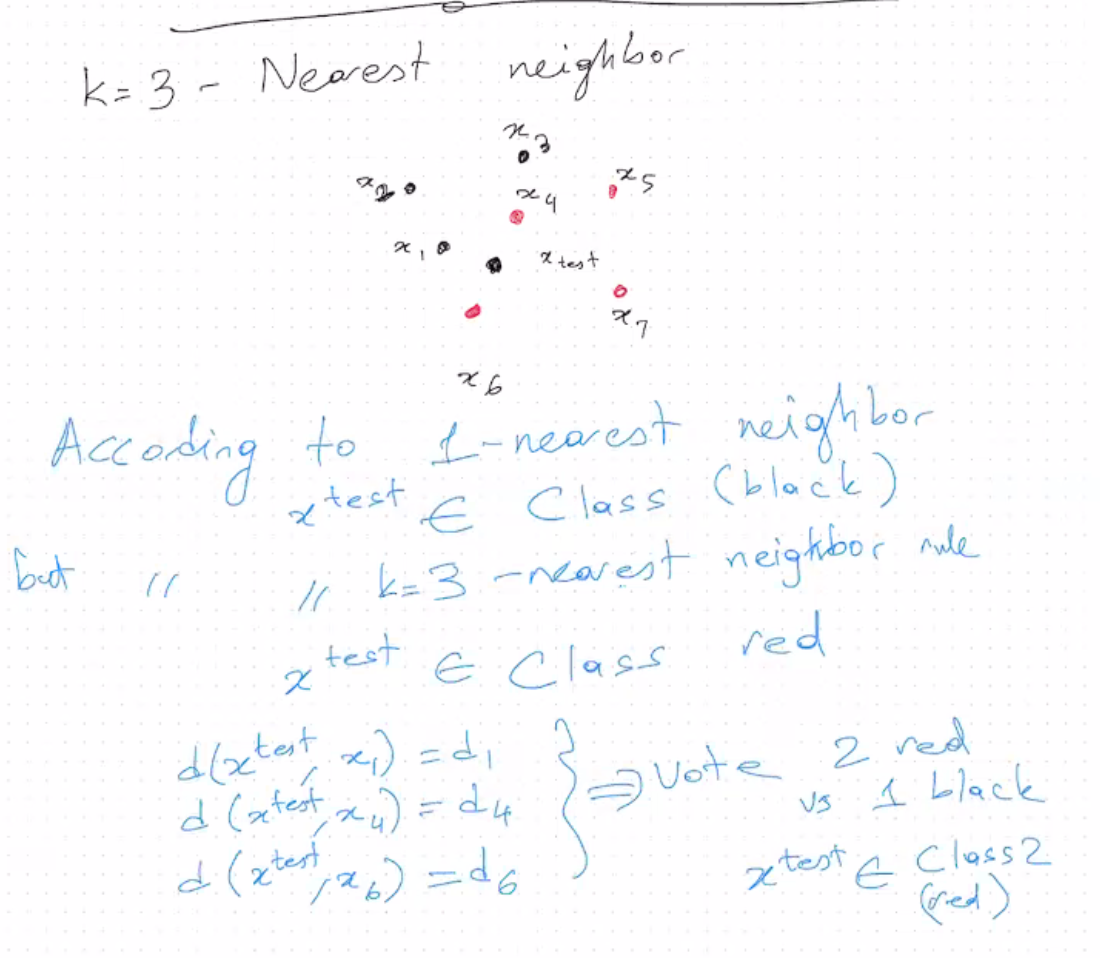 k=3 - Nearest neighbor
x3
x2
x4
x5
x1
xtest
x7
x6
Accoding to 1-nearest neighbor
x^test ∈ Class (black)
but // // k=3 -nearest neighbor rule
x^test ∈ Class red
d(x^test, x1) = d1
d(x^test, x4) = d4
d(x^test, x6) = d6
} ⇒ Vote 2 red
vs 1 black
x^test ∈ Class2
(red)